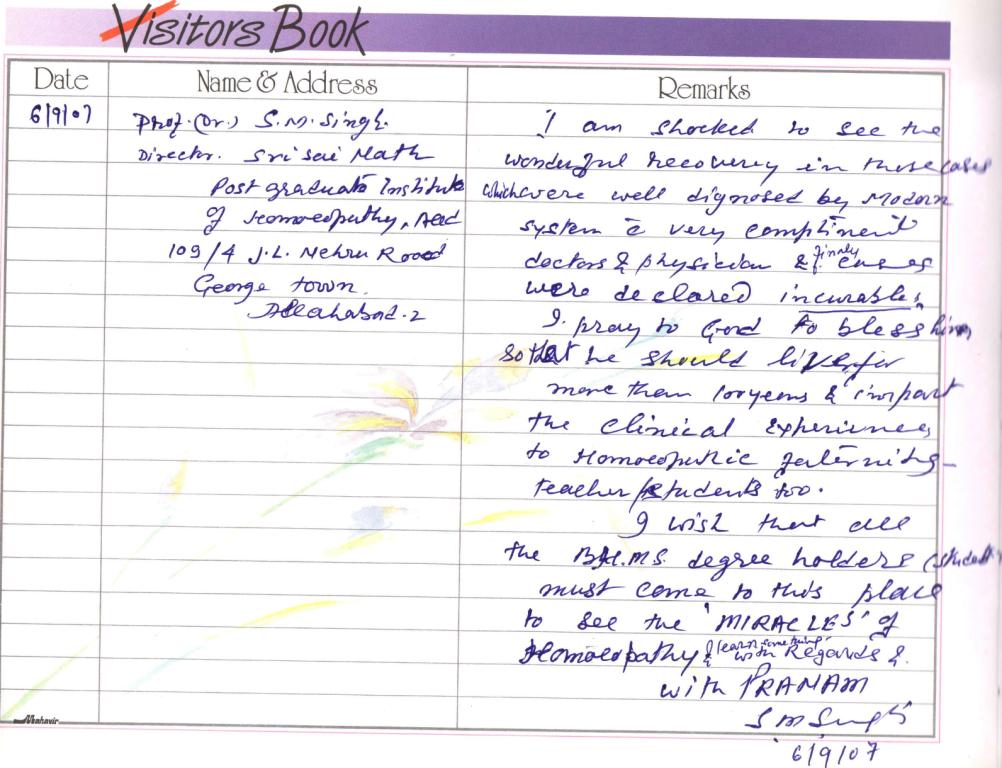 Visitors Book
Date
Name & Address
Remarks
6/9/07
Prof. (Dr.) S.M. Singh.
Director. Sri Sai Nath
Post graduate Institute
of Homoeopathy,
109/4 J.L. Nehru Road
George town.
Allahabad-2
I am shocked to see the
wonderful recovery in those cases
which were well dignosed by Modern
system c̄ very compliment
doctors & physician & finaly cases
were declared incurables,
I pray to God to bless him,
so that he should live for
more than 100 years & impart
the clinical experiences
to Homoeopathic faternity -
teacher/students too.
I wish that all
the B.H.M.S. degree holders (student
must come to this place
to see the 'MIRACLES' of
Homoeopathy & learn something with Regards &
with PRANAM
S M Singh
6/9/07
Mahavir